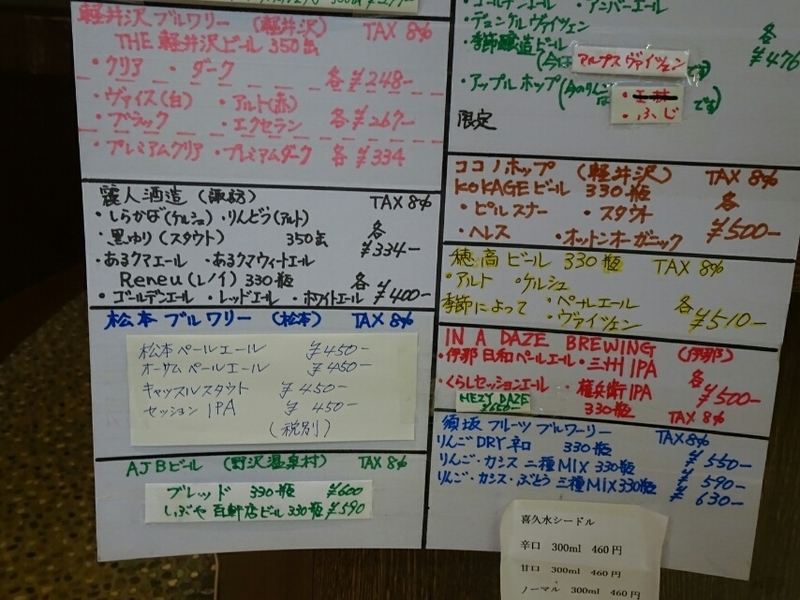 軽井沢 ブルワリー (軽井沢) TAX 8%
THE 軽井沢ビール 350缶
・クリア ・ダーク 各 ¥248-
・ヴァイス(白) ・アルト(赤)
・ブラック ・エクセラン 各 ¥267-
・プレミアムクリア ・プレミアムダーク 各 ¥334
麗人酒造 (諏訪) TAX 8%
・しらかば(ケルシュ) ・りんどう(アルト)
・黒ゆり(スタウト) 350缶 各 ¥334-
・あるクマエール ・あるクマウィートエール
Reneu(レノイ) 330瓶 各
・ゴールデンエール ・レッドエール ・ホワイトエール ¥400-
松本 ブルワリー (松本) TAX 8%
松本ペールエール ¥450-
オーサムペールエール ¥450-
キャッスルスタウト ¥450-
セッションIPA ¥450-
(税別)
AJBビール (野沢温泉村) TAX 8%
ブレッド 330瓶 ¥600
しぶや百軒店ビール 330瓶 ¥590
・ゴールデンエール ・アンバーエール
・デュンケルヴァイツェン 各
・季節醸造ビール ¥476
(今は アルプスヴァイツェン です)
・アップルホップ (今のりんごは ・ふじ です)
限定
ココノホップ (軽井沢) TAX 8%
KOKAGEビール 330瓶 各
・ピルスナー ・スタウト
・ヘレス ・オットンオーガニック ¥500-
穂高ビール 330瓶 TAX 8%
・アルト ・ケルシュ
季節によって ・ペールエール 各
・ヴァイツェン ¥510-
IN A DAZE BREWING (伊那)
・伊那日和ペールエール ・三州IPA 各
・くらしセッションエール ・権兵衛IPA ¥500-
HEZY DAZE ¥650- 330瓶 TAX 8%
須坂フルーツブルワーリー TAX 8%
りんごDRY辛口 330瓶 ¥550-
りんご・カシス 二種MIX 330瓶 ¥590-
りんご・カシス・ぶどう 三種MIX 330瓶 ¥630-
喜久水シードル
辛口 300ml 460円
甘口 300ml 460円
ノーマル 300ml 460円